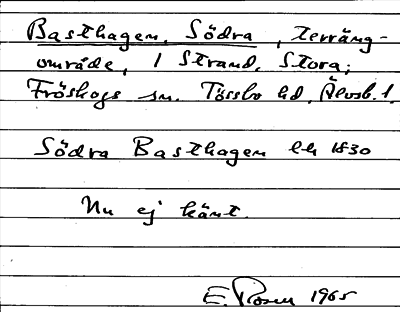 Basthagen, Södra, terräng-
område, i Strand, Stora;
Fröskogs sn. Tössbo hd, Älvsb. l.
Södra Basthagen lh 1830
Nu ej känt.
E. Rosen 1965